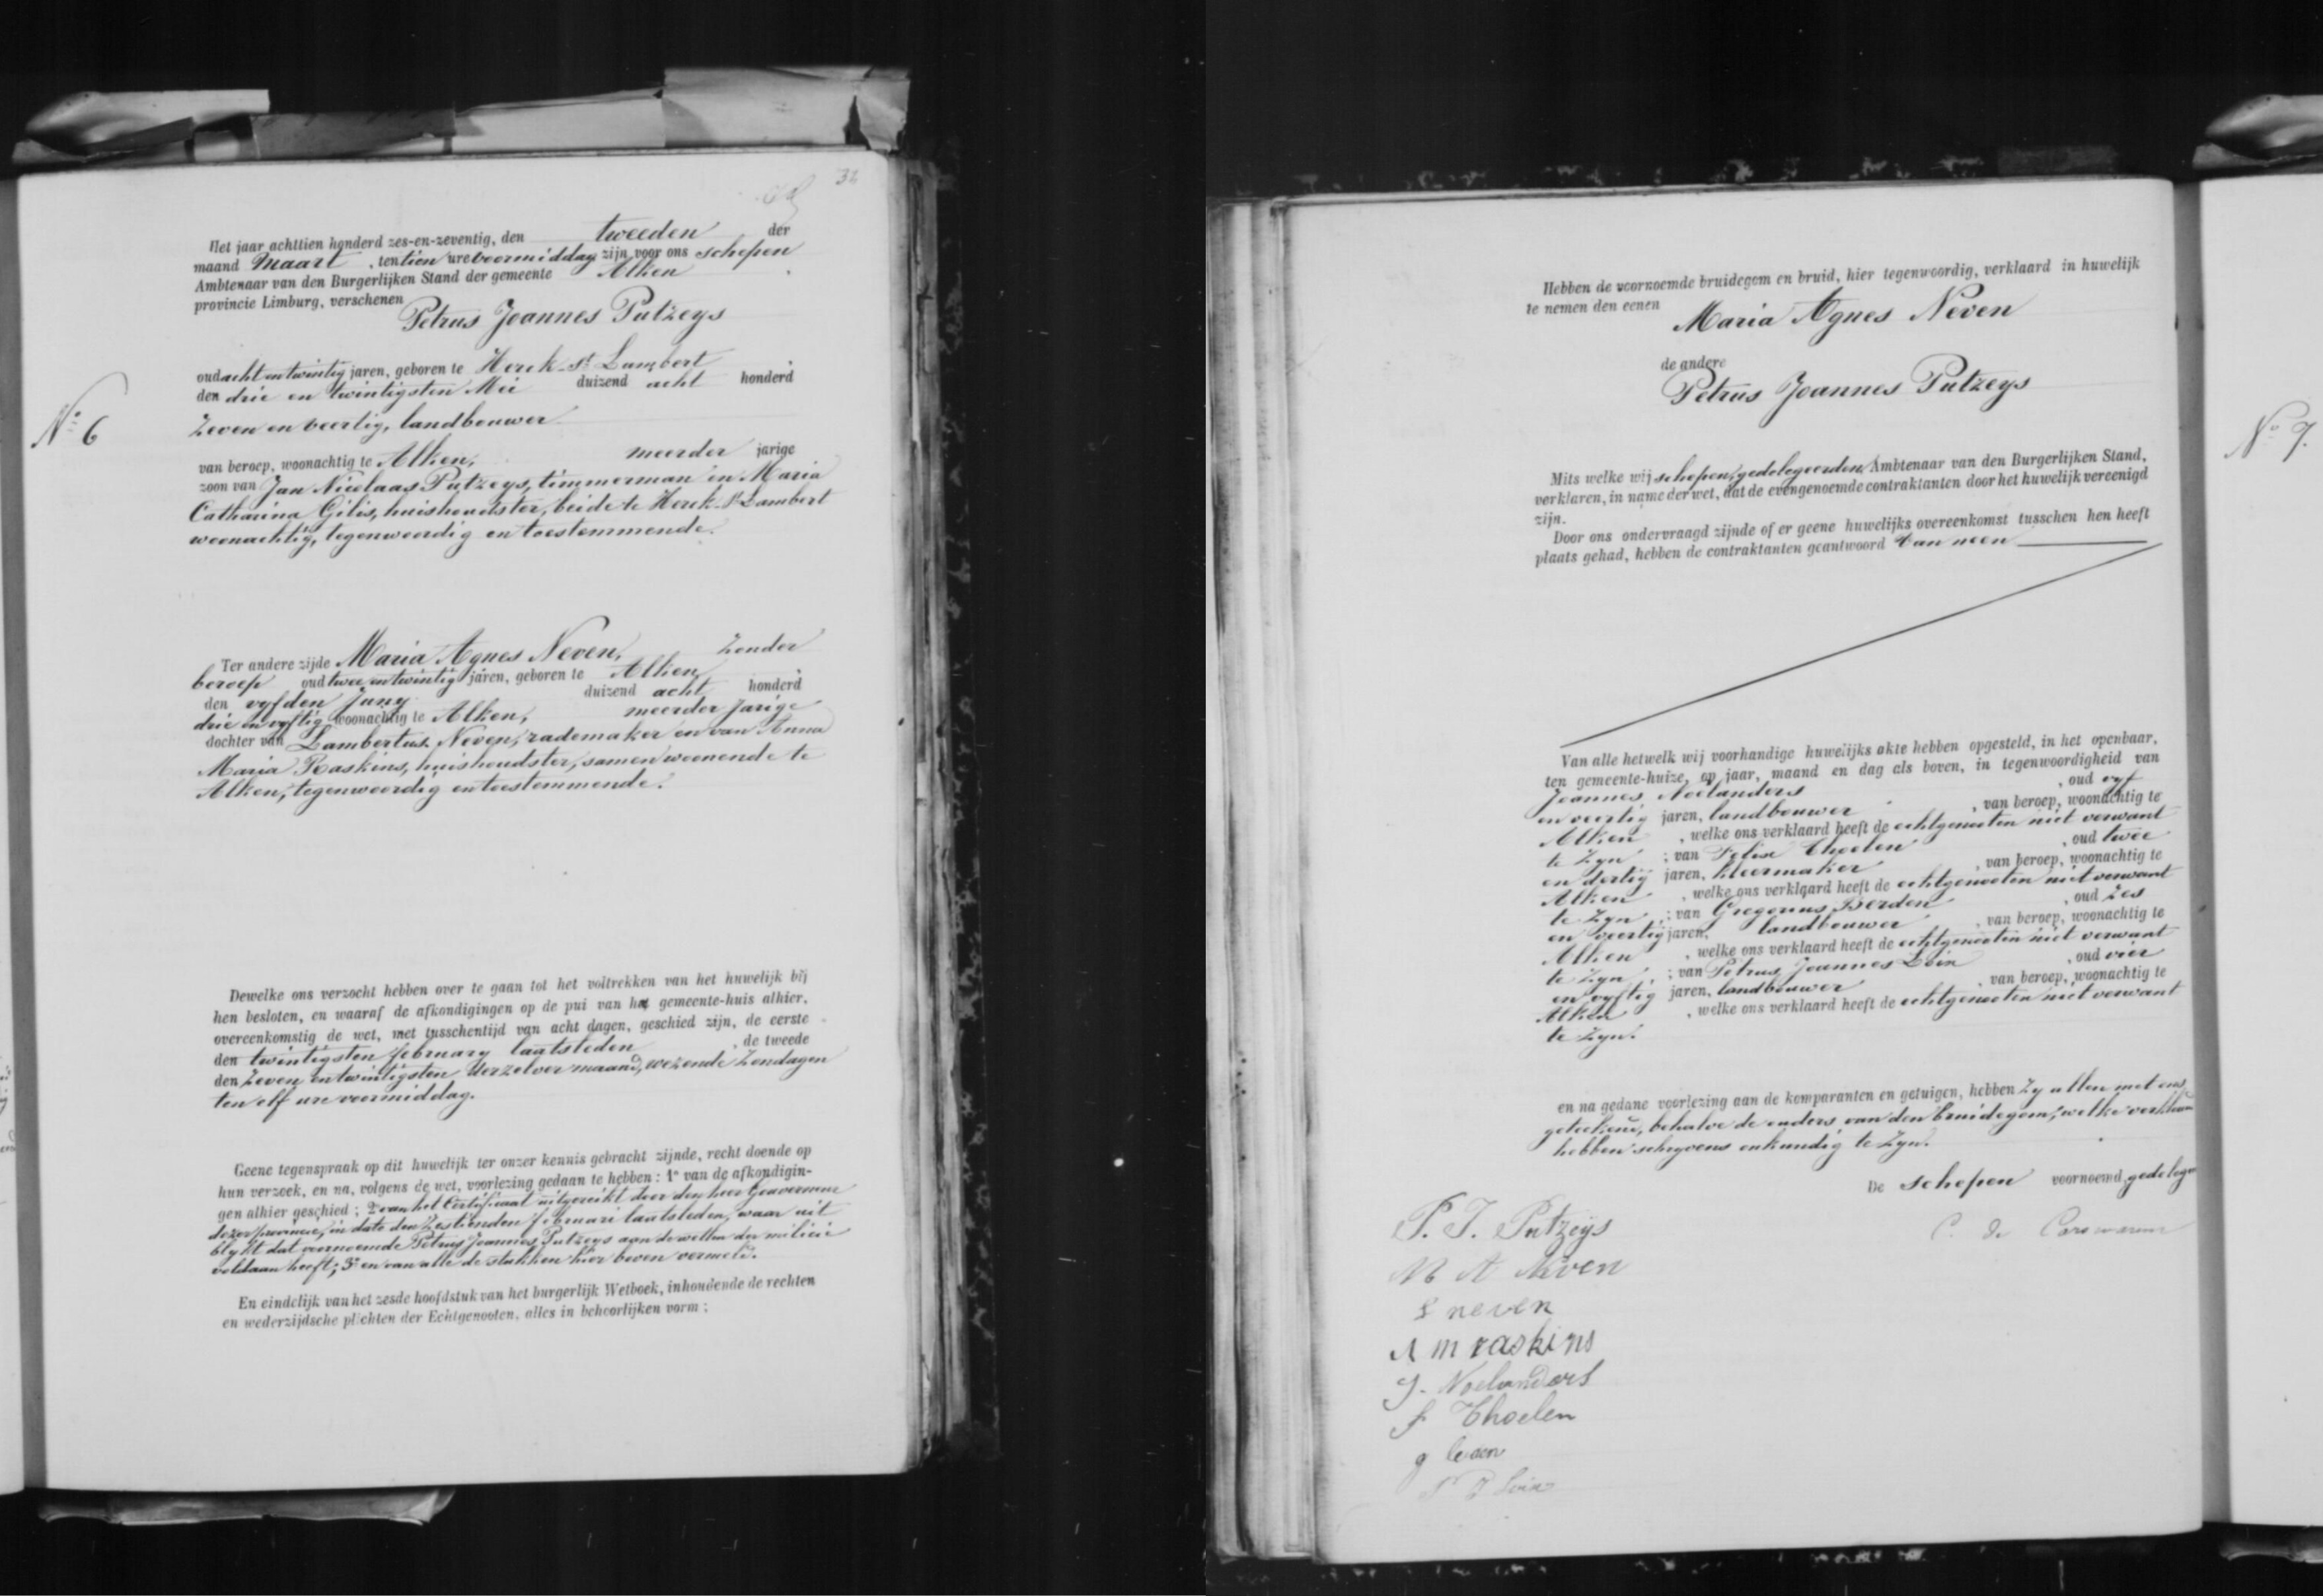 32
Het jaar achttien honderd zes-en-zeventig, den tweeden der
maand Maart, ten tien ure voormiddag zijn voor ons schepen
Ambtenaar van den Burgerlijken Stand der gemeente Alken
provincie Limburg, verschenen
Petrus Joannes Putzeys
oud acht en twintig jaren, geboren te Herck-St Lambert
den drie en twintigsten Mei duizend acht honderd
N° 6
Zeven en veertig, landbouwer
van beroep, woonachtig te Alken, meerder jarige
zoon van Jan Nicolaas Putzeys, timmerman en Maria
Catharina Gilis, huishoudster, beide te Herck-St Lambert
woonachtig, tegenwoordig en toestemmende.
Ter andere zijde Maria Agnes Neven, Zonder
beroep oud twee en twintig jaren, geboren te Alken
den vyfden Juny duizend acht honderd
drie en vyftig woonachtig te Alken, meerder jarige
dochter van Lambertus Neven, rademaker en van Anna
Maria Raskins, huishoudster, samen woonende te
Alken, tegenwoordig en toestemmende.
Dewelke ons verzocht hebben over te gaan tot het voltrekken van het huwelijk bij
hen besloten, en waaraf de afkondigingen op de pui van het gemeente-huis alhier,
overeenkomstig de wet, met tusschentijd van acht dagen, geschied zijn, de eerste
den twintigsten february laatsleden, de tweede
den Zeven en twintigsten derzelver maand, wezende Zondagen
ten elf ure voormiddag.
Geene tegenspraak op dit huwelijk ter onzer kennis gebracht zijnde, recht doende op
hun verzoek, en na, volgens de wet, voorlezing gedaan te hebben : 1° van de afkondigin-
gen alhier geschied ; 2° van het Certificaat uitgereikt door den heer Gouverneur
dezer provincie, in date den Zestienden februari laatsleden, waar uit
blykt dat voornoemde Petrus Joannes Putzeys aan de wetten der milicie
voldaan heeft; 3° en van alle de stukken hier boven vermeld.
En eindelijk van het zesde hoofdstuk van het burgerlijk Wetboek, inhoudende de rechten
en wederzijdsche plichten der Echtgenooten, alles in behoorlijken vorm ;
Hebben de voornoemde bruidegom en bruid, hier tegenwoordig, verklaard in huwelijk
te nemen den eenen
Maria Agnes Neven
de andere
Petrus Joannes Putzeys
Mits welke wij schepen, gedelegeerden Ambtenaar van den Burgerlijken Stand,
verklaren, in name der wet, dat de evengenoemde contraktanten door het huwelijk vereenigd
zijn.
Door ons ondervraagd zijnde of er geene huwelijks overeenkomst tusschen hen heeft
plaats gehad, hebben de contraktanten geantwoord van neen
Van alle hetwelk wij voorhandige huwelijks akte hebben opgesteld, in het openbaar,
ten gemeente-huize, op jaar, maand en dag als boven, in tegenwoordigheid van
Joannes Noelanders, oud vyf
en veertig jaren, landbouwer, van beroep, woonachtig te
Alken, welke ons verklaard heeft de echtgenooten niet verwant
te Zyn ; van Felix Thoelen, oud twee
en dertig jaren, kleermaker, van beroep, woonachtig te
Alken, welke ons verklaard heeft de echtgenooten niet verwant
te Zyn ; van Gregorius Berden, oud Zes
en veertig jaren, landbouwer, van beroep, woonachtig te
Alken, welke ons verklaard heeft de echtgenooten niet verwant
te Zyn ; van Petrus Joannes Loix, oud vier
en vyftig jaren, landbouwer, van beroep, woonachtig te
Alken, welke ons verklaard heeft de echtgenooten niet verwant
te Zyn.
en na gedane voorlezing aan de komparanten en getuigen, hebben Zy allen met ons
geteekend, behalve de ouders van den bruidegom, welke
hebben schryvens onkundig te Zyn.
De schepen voornoemd,
P. J. Putzeys
C. de Corswarem
M A Neven
L neven
A m raskins
J. Noelanders
f Thoelen
g
P J Loix
N° 7.